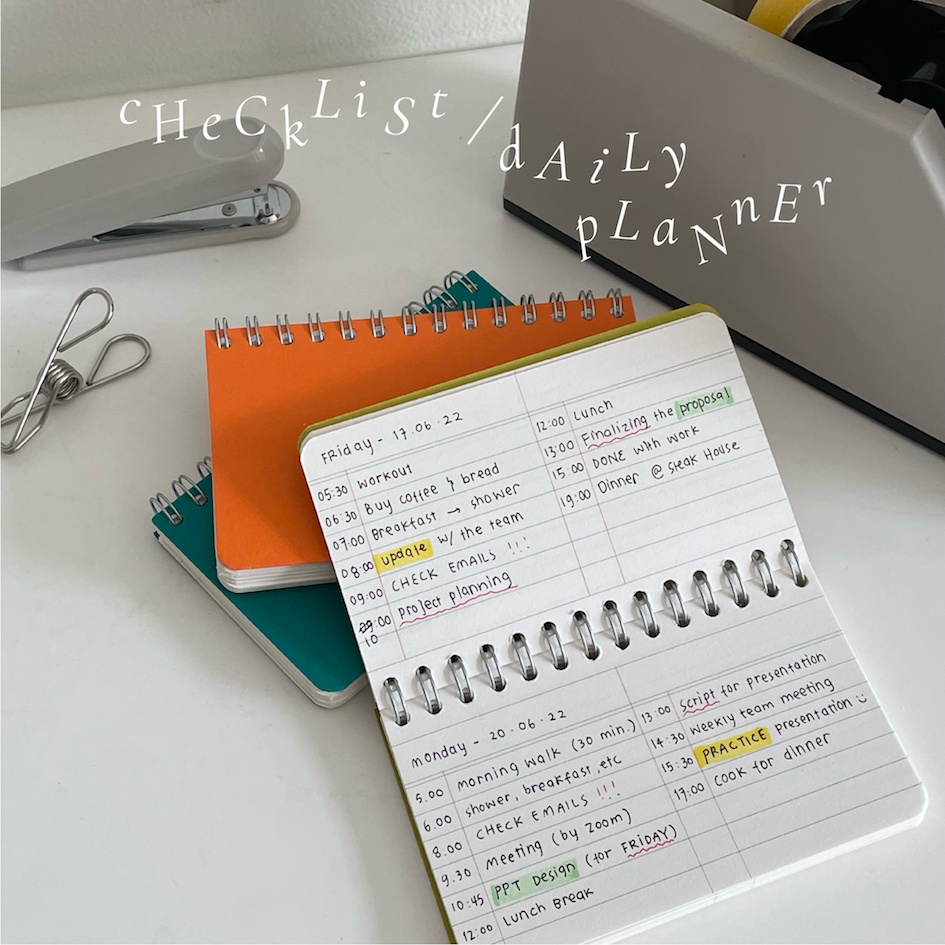 cHeCkLiSt /
dAiLy
pLaNnEr
FRiday - 17.06.22
05:30 workout
06:30 Buy coffee & bread
07:00 Breakfast → shower
08:00 update w/ the team
09:00 CHECK EMAILS !!!
10:00 project planning
12:00 Lunch
13:00 Finalizing the proposal
15:00 DONE with work
19:00 Dinner @ Steak House
monday - 20.06.22
5.00 morning walk (30 min.)
6.00 shower, breakfast, etc
8.00 CHECK EMAILS !!!
9.30 meeting (by zoom)
10:45 PPT Design (for FRIDAY)
12:00 Lunch Break
13:00 script for presentation
14:30 weekly team meeting
15:30 PRACTICE presentation ☺
17:00 cook for dinner